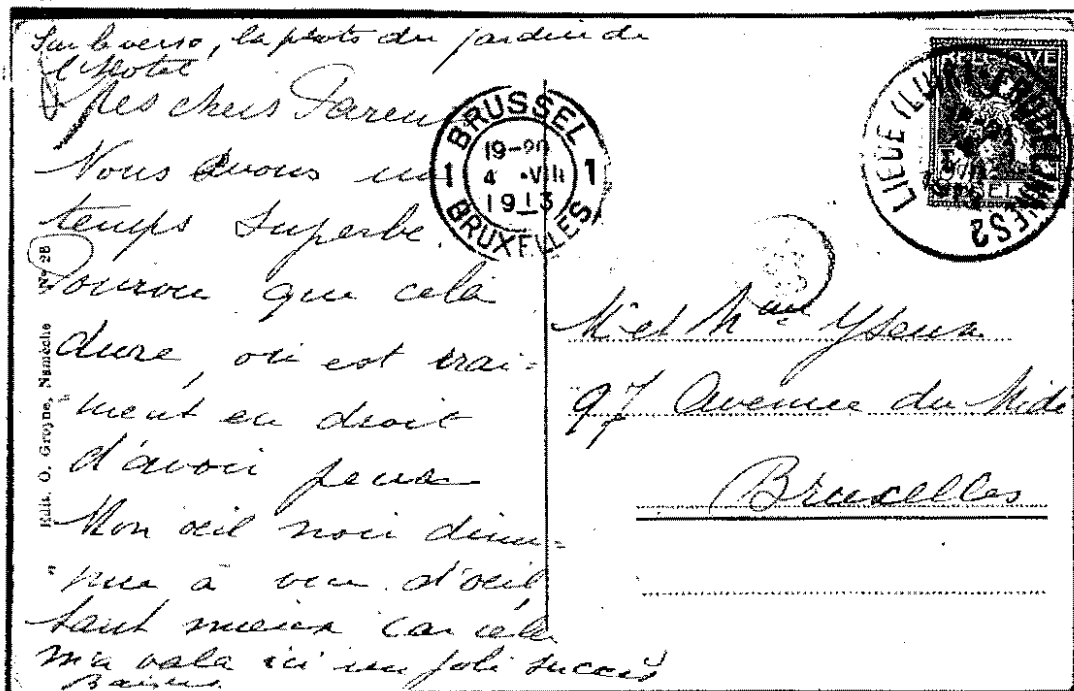 Sur le verso, la photo du jardin de
l'Hotel
Mes chers Parents
Nous avons un
temps superbe.
Pourvu que cela
dure, on est vrai=
ment en droit
d'avoir peur
Mon oeil noir dimi=
nue à vue d'oeil
tant mieux car cela
m'a valu ici un joli succès
Baisers
Edit. O. Grojne, Namèche
N° 28
1 BRUSSEL 1
19-20
4 VIII
1913
BRUXELLES
LIEGE
2
M et Mme Yseux
97 Avenue du Midi
Bruxelles